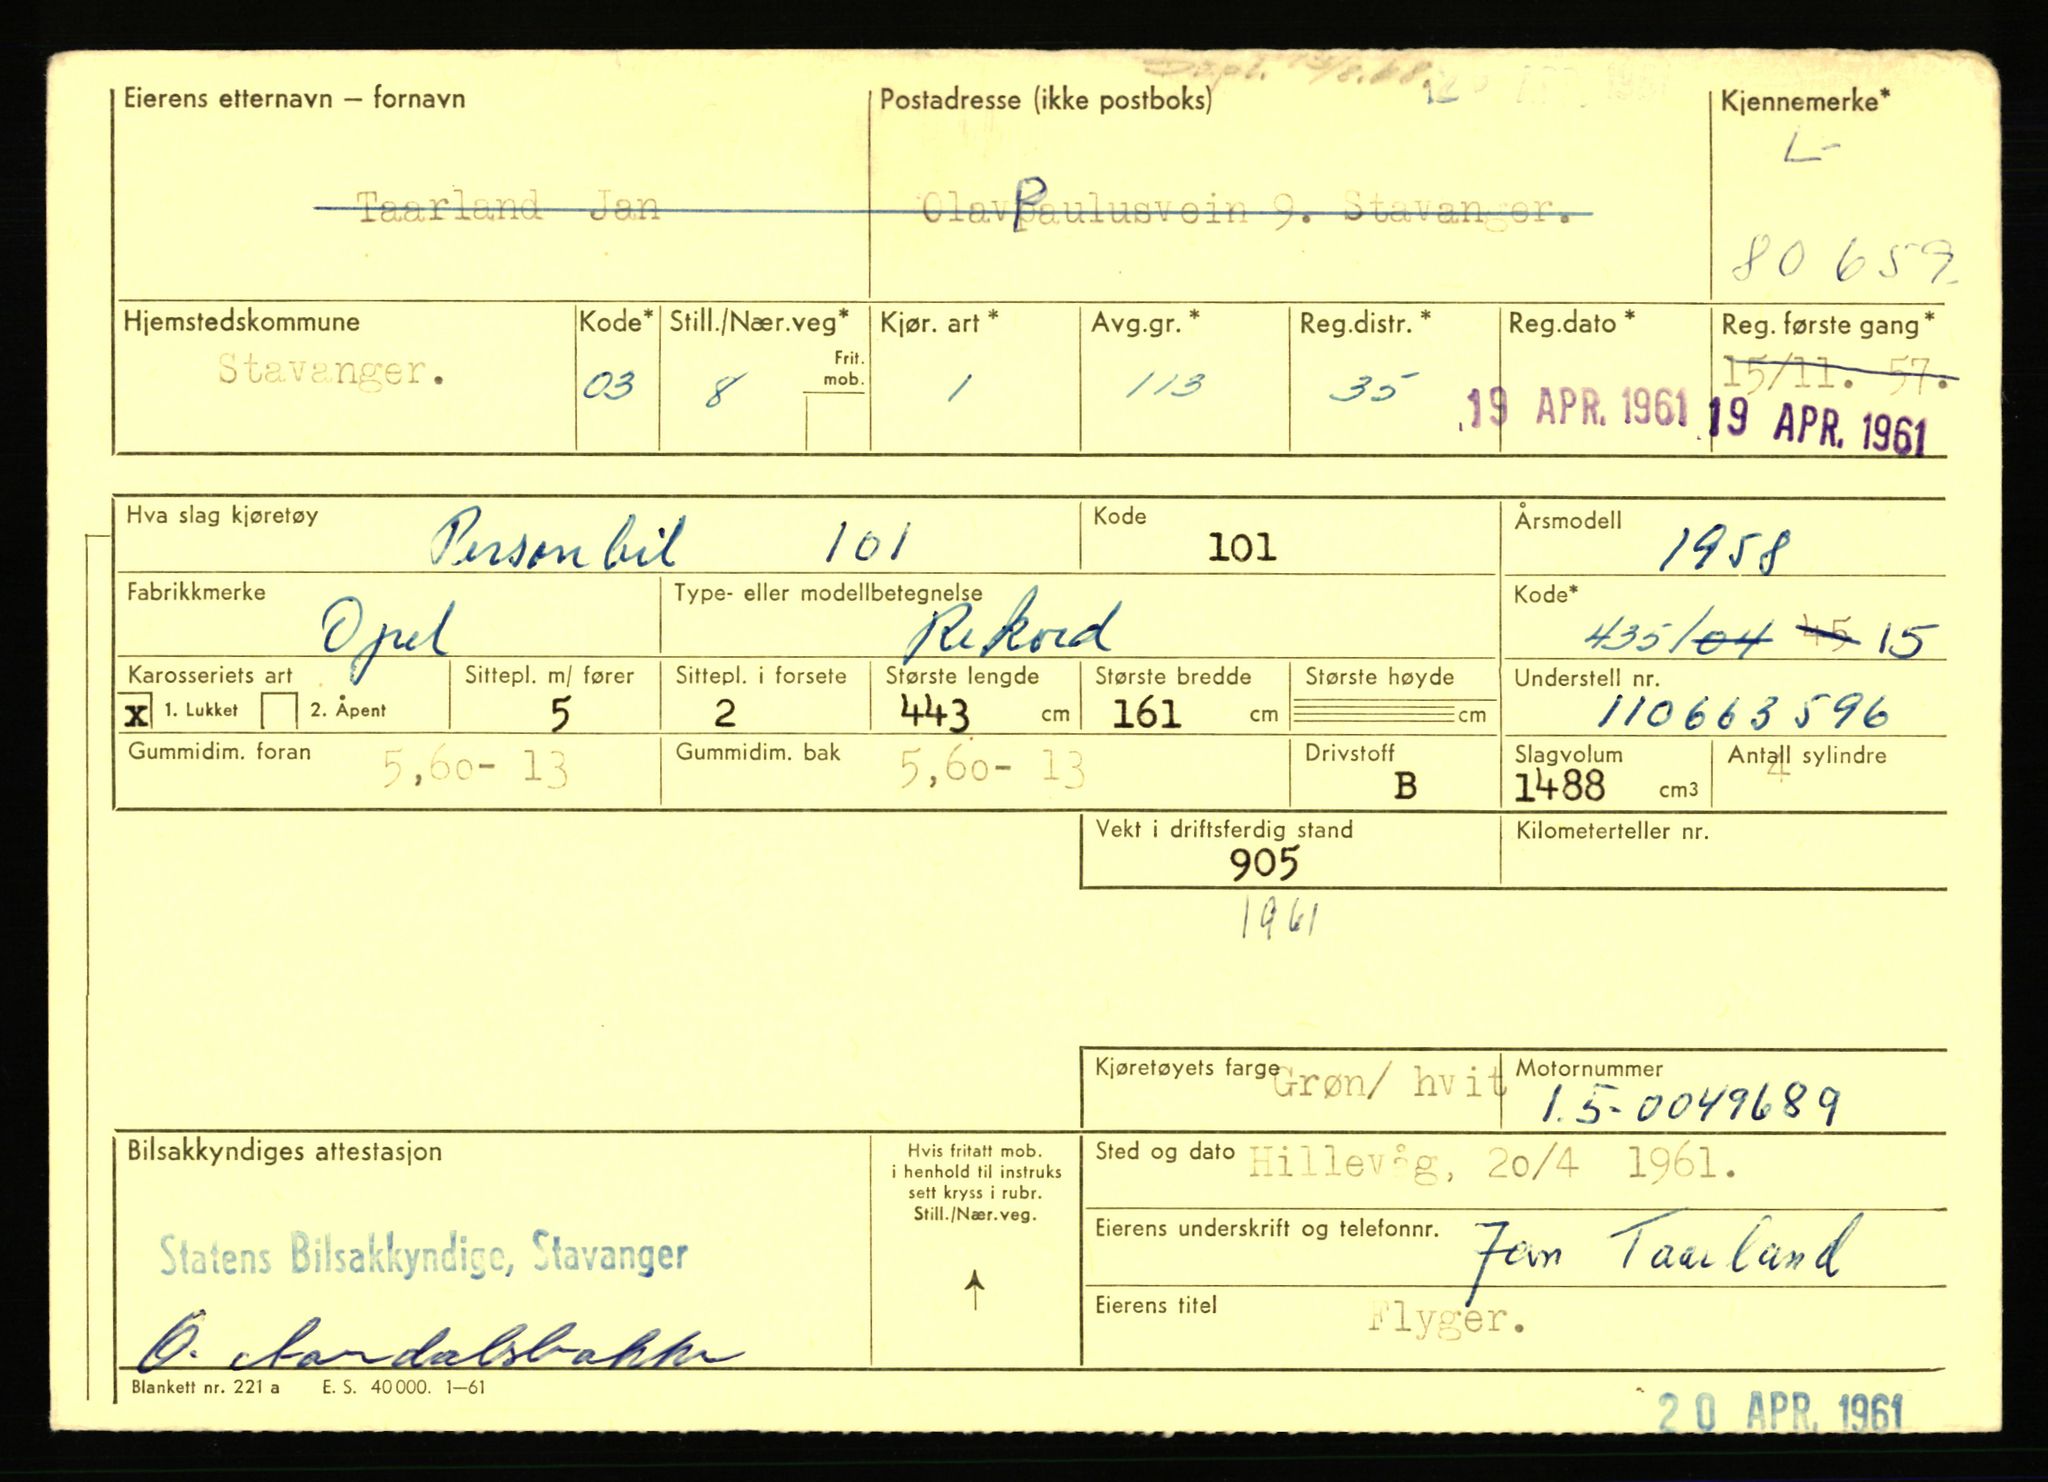 Eierens etternavn – fornavn
Postadresse (ikke postboks)
Kjennemerke*
L-
Taarland Jan
Olav Paulusvein 9. Stavanger.
80 659
Hjemstedskommune
Kode*
Still./Nær.veg*
Kjør. art *
Avg.gr. *
Reg.distr. *
Reg.dato *
Reg. første gang*
Stavanger.
03
8
Frit. mob.
1
113
35
19 APR. 1961
15/11. 57.
19 APR. 1961
Hva slag kjøretøy
Personbil 101
Kode
101
Årsmodell
1958
Fabrikkmerke
Opel
Type- eller modellbetegnelse
Rekord
Kode*
435/04 45 15
Karosseriets art
x 1. Lukket 2. Åpent
Sittepl. m/ fører
5
Sittepl. i forsete
2
Største lengde
443 cm
Største bredde
161 cm
Største høyde
cm
Understell nr.
110663596
Gummidim. foran
5,60- 13
Gummidim. bak
5,60- 13
Drivstoff
B
Slagvolum
1488 cm3
Antall sylindre
4
Vekt i driftsferdig stand
905
Kilometerteller nr.
1961
Kjøretøyets farge
Grøn/ hvit
Motornummer
1.5-0049689
Bilsakkyndiges attestasjon
Hvis fritatt mob.
i henhold til instruks
sett kryss i rubr.
Still./Nær.veg.
Sted og dato
Hillevåg, 20/4 1961.
Statens Bilsakkyndige, Stavanger
Eierens underskrift og telefonnr.
Jan Taarland
Eierens titel
Flyger.
Blankett nr. 221 a E. S. 40 000. 1–61
20 APR. 1961